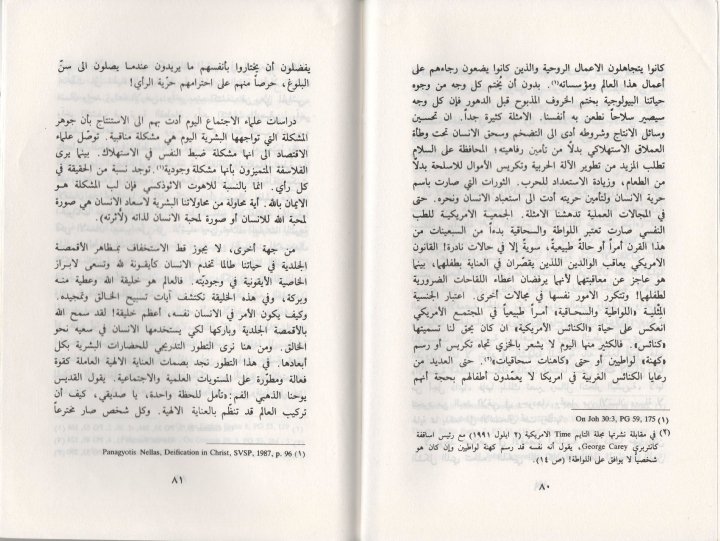 كانوا يتجاهلون الاعمال الروحية والذين كانوا يضعون رجاءهم على
أعمال هذا العالم ومؤسساته(١). بدون أن يُختم كل وجه من وجوه
حياتنا البيولوجية بختم الخروف المذبوح قبل الدهور فإن كل وجه
سيصير سلاحاً نطعن به أنفسنا. الامثلة كثيرة جداً. ان تحسين
وسائل الانتاج وشروطه أدى الى التضخم وسحق الانسان تحت وطأة
العملاق الاستهلاكي بدلاً من تأمين رفاهيته؛ المحافظة على السلام
تطلب المزيد من تطوير الآلة الحربية وتكريس الأموال للاسلحة بدلاً
من الطعام، وزيادة الاستعداد للحرب. الثورات التي صارت باسم
حرية الانسان ولتأمين حريته أدت الى استعباد الانسان ونحره. حتى
في المجالات العملية تدهشنا الامثلة. الجمعية الامريكية للطب
النفسي صارت تعتبر اللواطة والسحاقية بدءاً من السبعينات من
هذا القرن أمراً أو حالةً طبيعيةً، سويةً إلا في حالات نادرة! القانون
الامريكي يعاقب الوالدين اللذين يقصّران في العناية بطفلهما، بينما
هو عاجز عن معاقبتهما لأنهما يرفضان اعطاء اللقاحات الضرورية
لطفلهما! وتتكرر الامور نفسها في مجالات أخرى. اعتبار الجنسية
المثْلية «اللواطية والسحاقية» أمراً طبيعياً في المجتمع الأمريكي
انعكس على حياة «الكنائس الأمريكية» ان كان يحق لنا تسميتها
«كنائس». فالكثير منها اليوم لا يشعر بالخزي تجاه تكريس أو رسم
«كهنة» لواطيين أو حتى «كاهنات سحاقيات»(٢). حتى العديد من
رعايا الكنائس الغربية في امريكا لا يعمّدون أطفالهم بحجة أنهم
(١) On Joh 30:3, PG 59, 175
(٢) في مقابلة نشرتها مجلة التايم Time الامريكية (٢ ايلول ١٩٩١) مع رئيس اساقفة
كانتربري George Carey، يقول أنه نفسه قد رسم كهنة لواطيين وإن كان هو
شخصياً لا يوافق على اللواطة! (ص ١٤).
٨٠
يفضلون أن يختاروا بأنفسهم ما يريدون عندما يصلون الى سنّ
البلوغ، حرصاً منهم على احترامهم حرّية الرأي!
دراسات علماء الاجتماع اليوم أدت بهم الى الاستنتاج بأن جوهر
المشكلة التي تواجهها البشرية اليوم هي مشكلة مناقبية. توصّل علماء
الاقتصاد الى انها مشكلة ضبط النفس في الاستهلاك. بينما يرى
الفلاسفة المتميزون بأنها مشكلة وجودية(١). توجد نسبة من الحقيقة في
كل رأي. انما بالنسبة للاهوت الاوثوذكسي فإن لب المشكلة هو
الايمان بالله. أية محاولة من محاولاتنا البشرية لاسعاد الانسان هي صورة
لمحبة الله للانسان أو صورة لمحبة الانسان لذاته (لأثرته).
من جهة أخرى، لا يجوز قط الاستخفاف بمظاهر الأقمصة
الجلدية في حياتنا طالما تخدم الانسان كأيقونة لله وتسعى لابراز
الخاصية الأيقونية في وجوديته. فالعالم هو خليقة الله وعطية منه
وبركة، وفي هذه الخليقة نكتشف آيات تسبيح الخالق وتمجيده.
وكيف يكون الأمر في الانسان نفسه، أعظم خليقة! لقد سمح الله
بالأقمصة الجلدية وباركها لكي يستخدمها الانسان في سعيه نحو
الخالق. ومن هنا نرى التطور التدريجي للحضارات البشرية بكل
أبعادها. في هذا التطور نجد بصمات العناية الالهية العاملة كقوة
فعالة ومطوّرة على المستويات العلمية والاجتماعية. يقول القديس
يوحنا الذهبي الفم: «تأمل للحظة واحدة، يا صديقي، كيف أن
تركيب العالم قد تنظّم بالعناية الالهية. وكل شخص صار مخترعاً
(١) Panagyotis Nellas, Deification in Christ, SVSP, 1987, p. 96
٨١